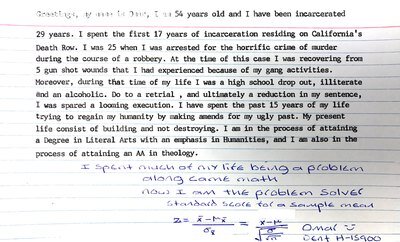 Greetings, my name is Omar, I am 54 years old and I have been incarcerated
29 years. I spent the first 17 years of incarceration residing on California's
Death Row. I was 25 when I was arrested for the horrific crime of murder
during the course of a robbery. At the time of this case I was recovering from
5 gun shot wounds that I had experienced because of my gang activities.
Moreover, during that time of my life I was a high school drop out, illiterate
and an alcoholic. Do to a retrial , and ultimately a reduction in my sentence,
I was spared a looming execution. I have spent the past 15 years of my life
trying to regain my humanity by making amends for my ugly past. My present
life consist of building and not destroying. I am in the process of attaining
a Degree in Literal Arts with an emphasis in Humanities, and I am also in the
process of attaining an AA in theology.
I spent much of my life being a problem
along came math
now I am the problem solver
standard score for a sample mean
Z = x̄ - μx̄ / σx̄ = x - μ / σ/√n Omar
Dent H-15900